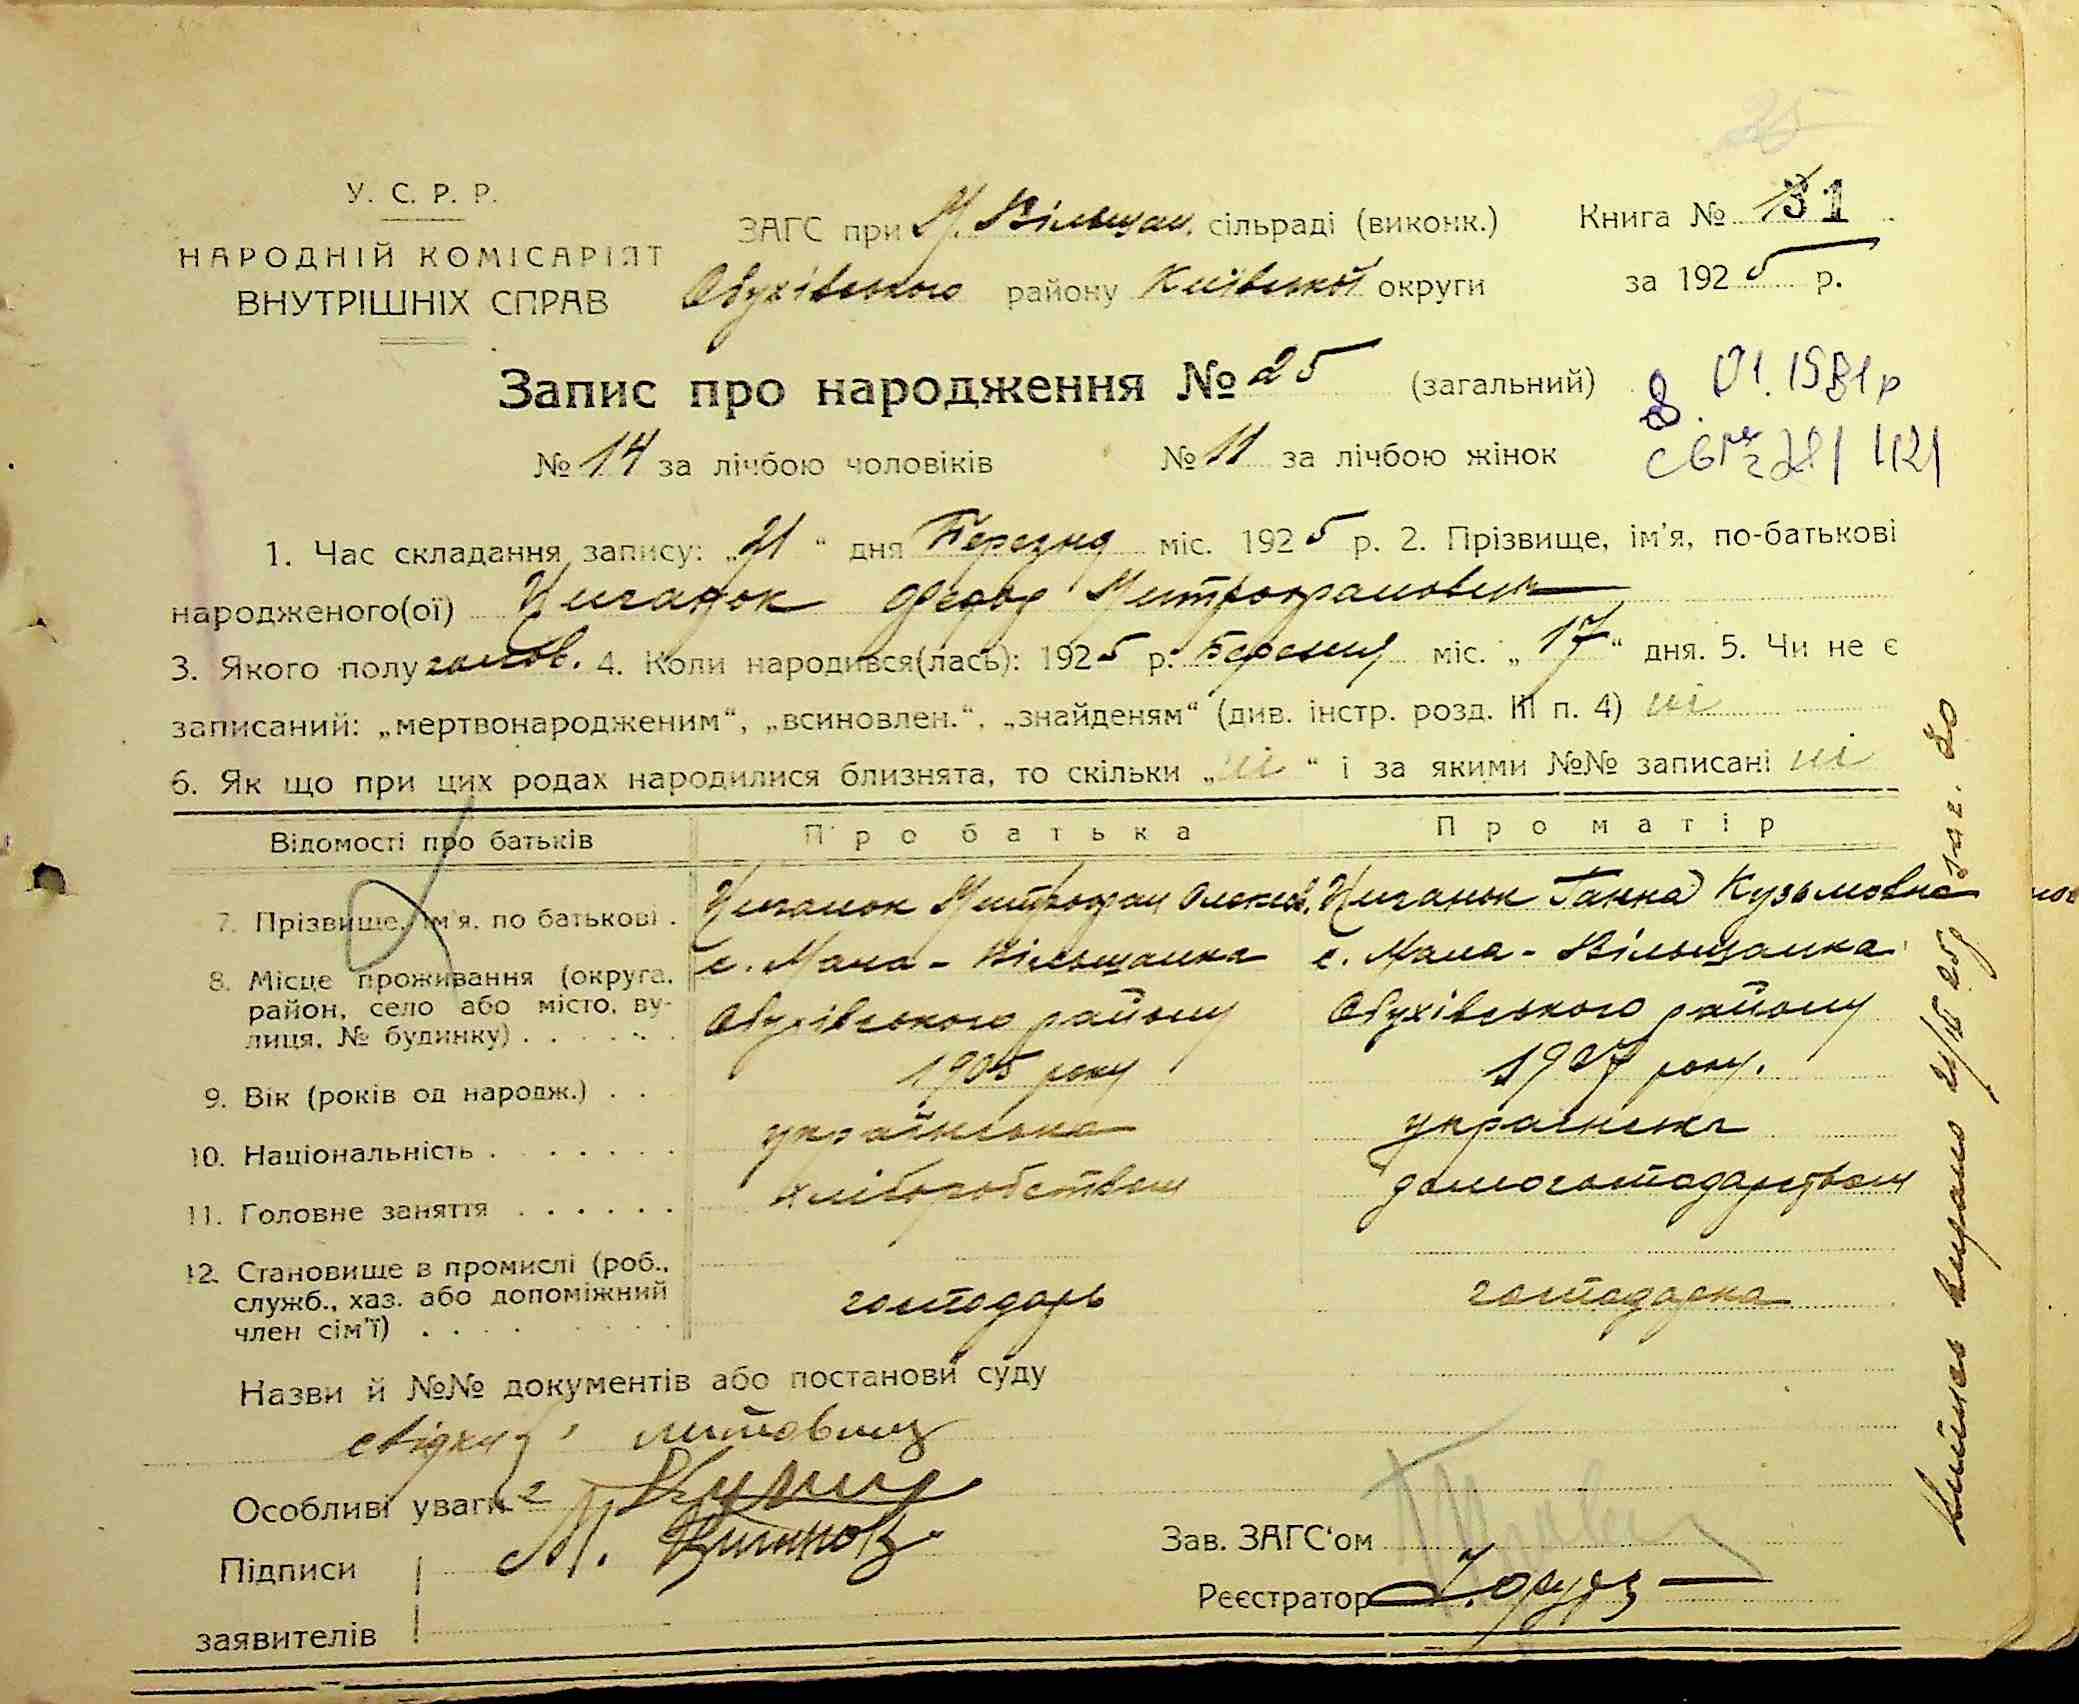 25
У. С. Р. Р.
НАРОДНІЙ КОМІСАРІЯТ
ВНУТРІШНІХ СПРАВ
ЗАГС при М. Вільщан. сільраді (виконк.)
Обухівського району Київської округи
Книга № 31
за 1925 р.
Запис про народження № 25 (загальний)
№ 14 за лічбою чоловіків № 11 за лічбою жінок
1. Час складання запису: „21“ дня Березня міс. 1925 р. 2. Прізвище, ім'я, по-батькові
народженого(ої) Циганок Федор Митрофанович
3. Якого полу чолов. 4. Коли народився(лась): 1925 р. Березня міс. „17“ дня. 5. Чи не є
записаний: „мертвонародженим“, „всиновлен.“, „знайденям“ (див. інстр. розд. III п. 4) ні
6. Як що при цих родах народилися близнята, то скільки „ні“ і за якими №№ записані ні
Відомості про батьків Про батька Про матір
7. Прізвище, ім'я, по батькові . Циганок Митрофан Олексів. Циганок Ганна Кузьмовна
8. Місце проживання (округа, район, село або місто, вулиця, № будинку) . . . . . .
с. Мала-Вільщанка с. Мала-Вільщанка
Обухівського району Обухівського району
9. Вік (років од народж.) . . 1905 року 1907 року.
10. Національність . . . . . . . українська українська
11. Головне заняття . . . . . . хліборобством домогосподарством
12. Становище в промислі (роб.,
служб., хаз. або допоміжний
член сім'ї) . . . . господарь господарка
Назви й №№ документів або постанови суду
свідки
Особливі уваги
Підписи М. Циганок
заявителів
Зав. ЗАГС'ом
Реєстратор